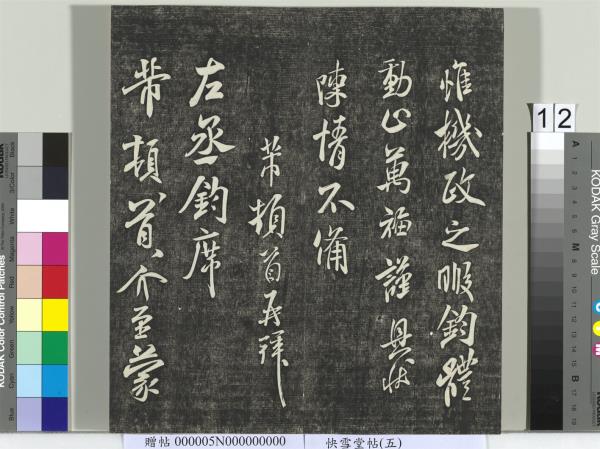 惟機政之暇鈞體
動止萬福謹具狀
陳情不備
芾頓首再拜
左丞鈞席
芾頓首介至蒙
12
贈帖 000005N000000000 快雪堂帖(五)
KODAK Color Control Patches
Blue
Cyan
Green
Yellow
Red
Magenta
White
3/Color
Black
KODAK Gray Scale
A 1 2 3 4 5 6 M 8 9 10 11 12 13 14 15 B 17 18 19
C
Y
M